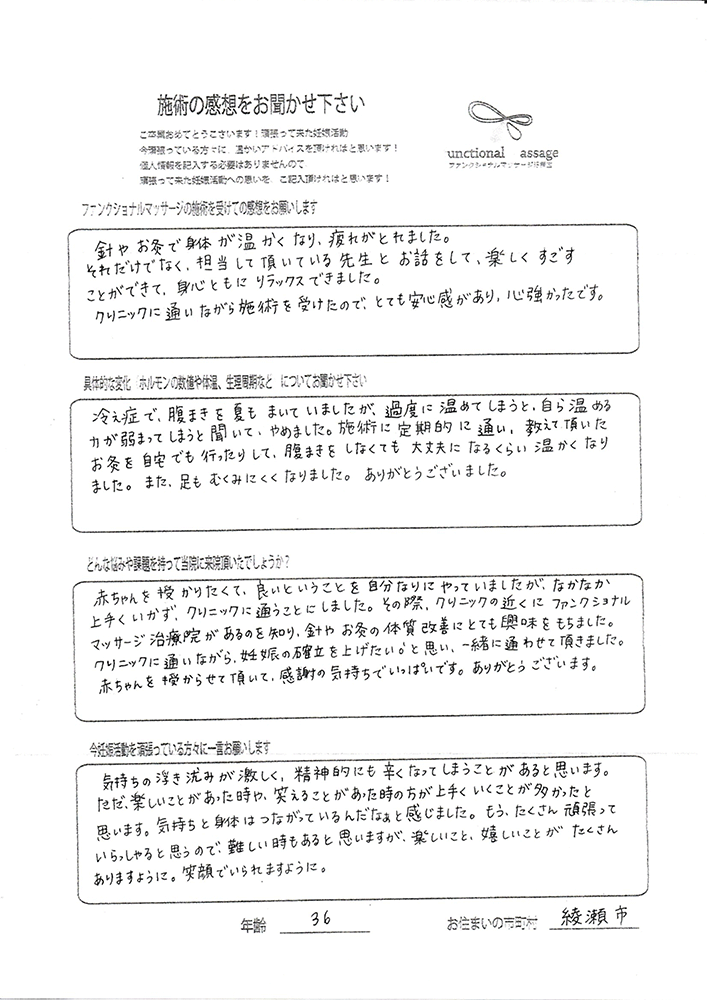 施術の感想をお聞かせ下さい
ご卒園おめでとうございます！頑張って来た妊娠活動
今頑張っている方々に、温かいアドバイスを頂ければと思います！
個人情報を記入する必要はありませんので
頑張って来た妊娠活動への思いを、ご記入頂ければと思います！
unctional assage
ファンクショナルマッサージ治療室
ファンクショナルマッサージの施術を受けての感想をお願いします
針やお灸で身体が温かくなり、疲れがとれました。
それだけでなく、担当して頂いている先生とお話をして、楽しくすごす
ことができて、身心ともにリラックスできました。
クリニックに通いながら施術を受けたので、とても安心感があり、心強かったです。
具体的な変化 ホルモンの数値や体温、生理周期など についてお聞かせ下さい
冷え症で、腹まきを夏もまいていましたが、過度に温めてしまうと、自ら温める
力が弱まってしまうと聞いて、やめました。施術に定期的に通い、教えて頂いた
お灸を自宅でも行ったりして、腹まきをしなくても大丈夫になるくらい温かくなり
ました。また、足もむくみにくくなりました。ありがとうございました。
どんな悩みや課題を持って当院に来院頂いたでしょうか？
赤ちゃんを授かりたくて、良いということを自分なりにやっていましたが、なかなか
上手くいかず、クリニックに通うことにしました。その際、クリニックの近くにファンクショナル
マッサージ治療院があるのを知り、針やお灸の体質改善にとても興味をもちました。
クリニックに通いながら、妊娠の確立を上げたい。と思い、一緒に通わせて頂きました。
赤ちゃんを授からせて頂いて、感謝の気持ちでいっぱいです。ありがとうございます。
今妊娠活動を頑張っている方々に一言お願いします
気持ちの浮き沈みが激しく、精神的にも辛くなってしまうことがあると思います。
ただ、楽しいことがあった時や、笑えることがあった時の方が上手くいくことが多かったと
思います。気持ちと身体はつながっているんだなぁと感じました。もう、たくさん頑張って
いらっしゃると思うので、難しい時もあると思いますが、楽しいこと、嬉しいことがたくさん
ありますように。笑顔でいられますように。
年齢 36 お住まいの市町村 綾瀬市